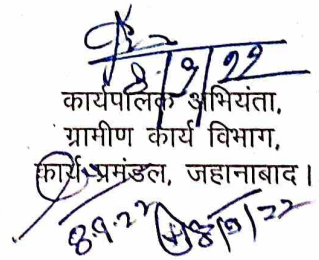 8/9/22
कार्यपालक अभियंता,
ग्रामीण कार्य विभाग,
कार्य प्रमंडल, जहानाबाद।
8.9.22 8/9/22